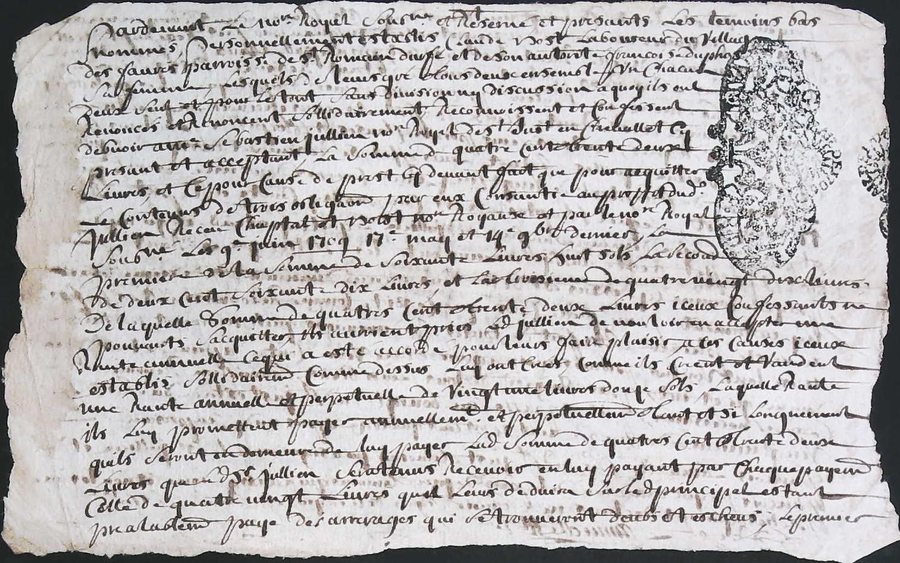 Pardevant Le nore Royal Sousne et Reserve et presants Les temoins bas
nommes Personnellement establis Claude Laboureur du Village
des fauves parroisse de st Romain et de son autorite francoise
sa femme, Lesquels de leurs gre tous deux ensembl Un Chacun
deux seul et pour le tout sans division ny discussion a quoy ils ont
Renoncés et Renoncent Sollidairement Reconnoissent et Confessent
debvoir a mre Sebastien Jullien nore Royal de st Just en Chevallet Cy
presant et acceptant La Somme de quatre Cent trente deux
Livres, et Ce pour Cause de prest Cy devant fait que pour acquitter
Le Contenu de trois obligaon par eux Consantie au proffit dud
Jullien Receu Chaptal et nore Royaux et par le nore Royal
Sousne Les 9e juin 1709 17e may et 14e 9bre dernier, La
premiere de la Somme de Soixante Livres huit Sols La Second
de deux Cent Soixante dix Livres et La troisieme de quatre vingt dix Livres
De laquelle Somme de quatres Cent trente deux Livres iceux Confessants ne
pouvants Sacquitter ils auroient priés Led Jullien de vouloir en accepter une
Rante annuelle Ce qui a esté accordé pour leurs faire plaisir a Ces Causes iceux
establis Sollidairemt Comme dessus Luy ont Crees, Comme ils Creent et Vandent
une Rante annuelle et perpetuelle de Vingt une Livres douze Sols Laquelle Rante
ils Luy promettent payer annuellemt et perpetuellemt tant et Si Longuement
quils Seront en demeure de Luy payer Lad Somme de quatres Cent trente deux
Livres que Led Sr Jullien Sera tenus Recevoir en Luy payant par Chacque payemt
Celle de quatre vingt Livres quil Leurs deduira Sur Led principal estant
prealablemt payé des arrerages qui Se trouveront deubs et escheus, Le premier